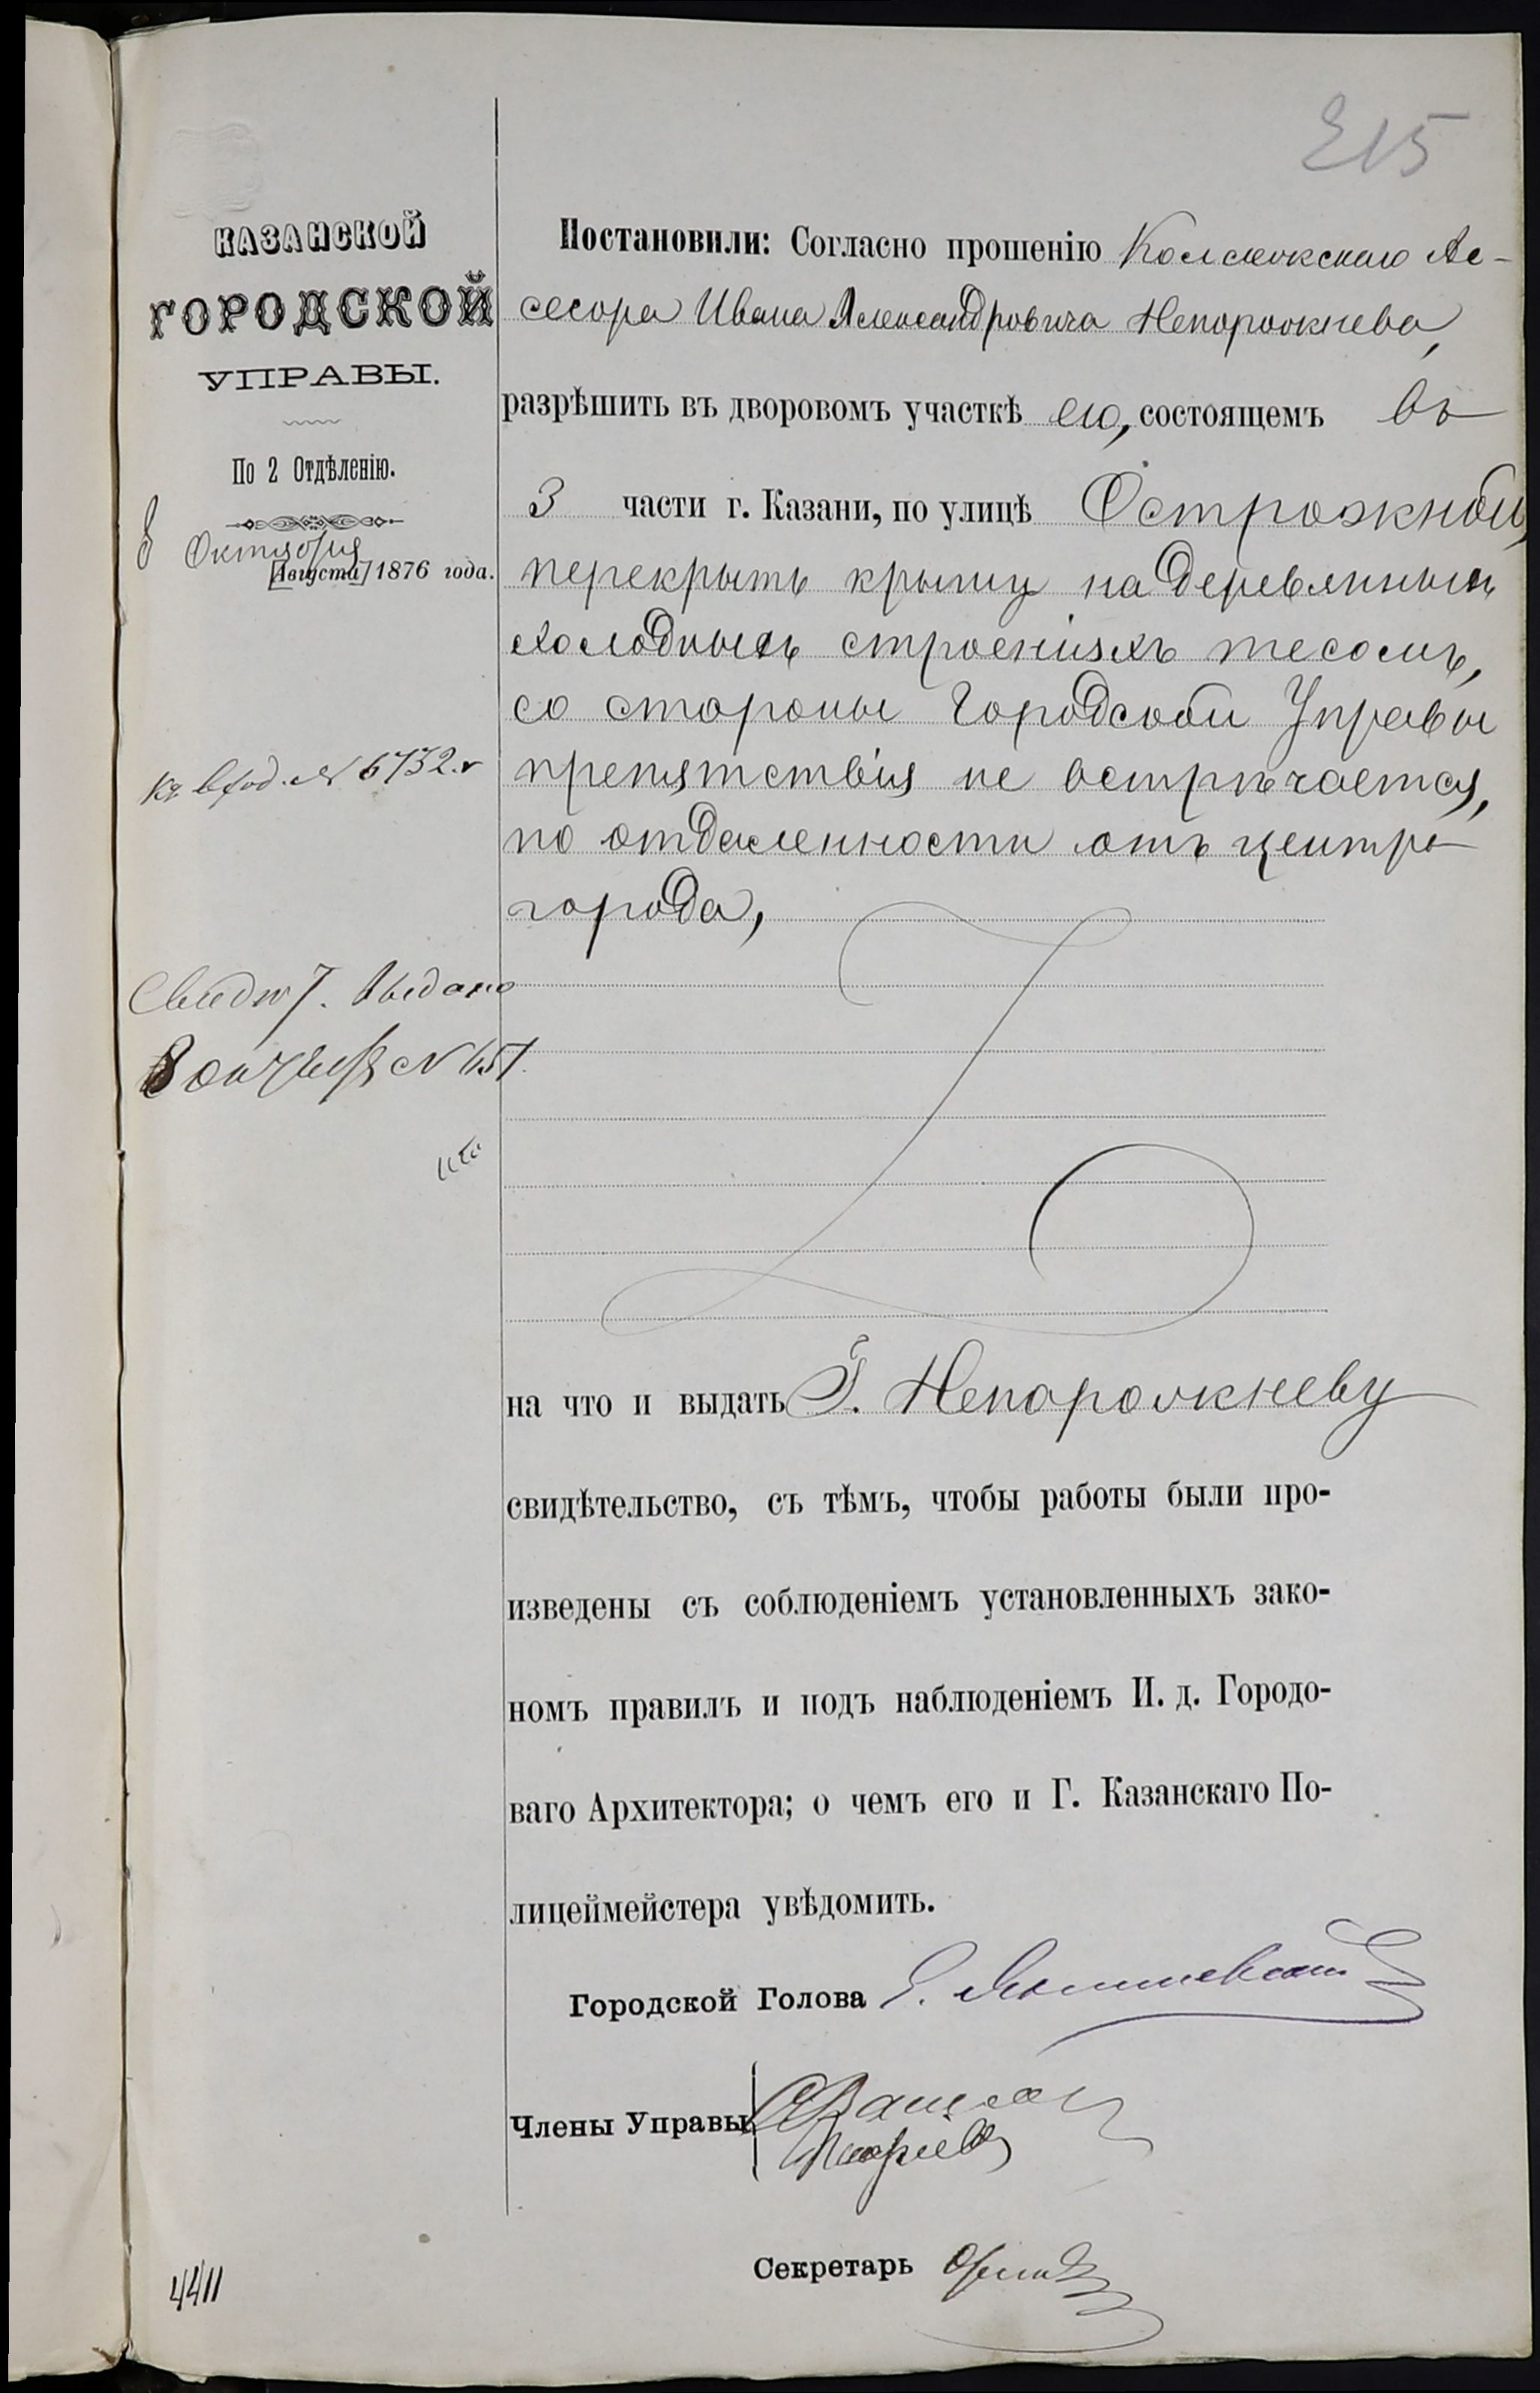 215
КАЗАНСКОЙ
ГОРОДСКОЙ
УПРАВЫ.
По 2 Отдѣленію.
8 Октября
[Августа] 1876 года.
Къ вход. № 6732.
Свидѣт. выдано
8 октября №
Постановили: Согласно прошенію Коллежскаго Ас-
сесора Ивана Александровича Непорожнева,
разрѣшить въ дворовомъ участкѣ его, состоящемъ въ
3 части г. Казани, по улицѣ Острожной,
перекрыть крышу на деревянныхъ
холодныхъ строеніяхъ тесомъ,
со стороны Городской Управы
препятствія не встрѣчается,
по отдаленности отъ центра
города,
на что и выдать Г. Непорожневу
свидѣтельство, съ тѣмъ, чтобы работы были про-
изведены съ соблюденіемъ установленныхъ зако-
номъ правилъ и подъ наблюденіемъ И. д. Городо-
ваго Архитектора; о чемъ его и Г. Казанскаго По-
лицеймейстера увѣдомить.
Городской Голова Э. Янишевскій
Члены Управы
Секретарь
4411